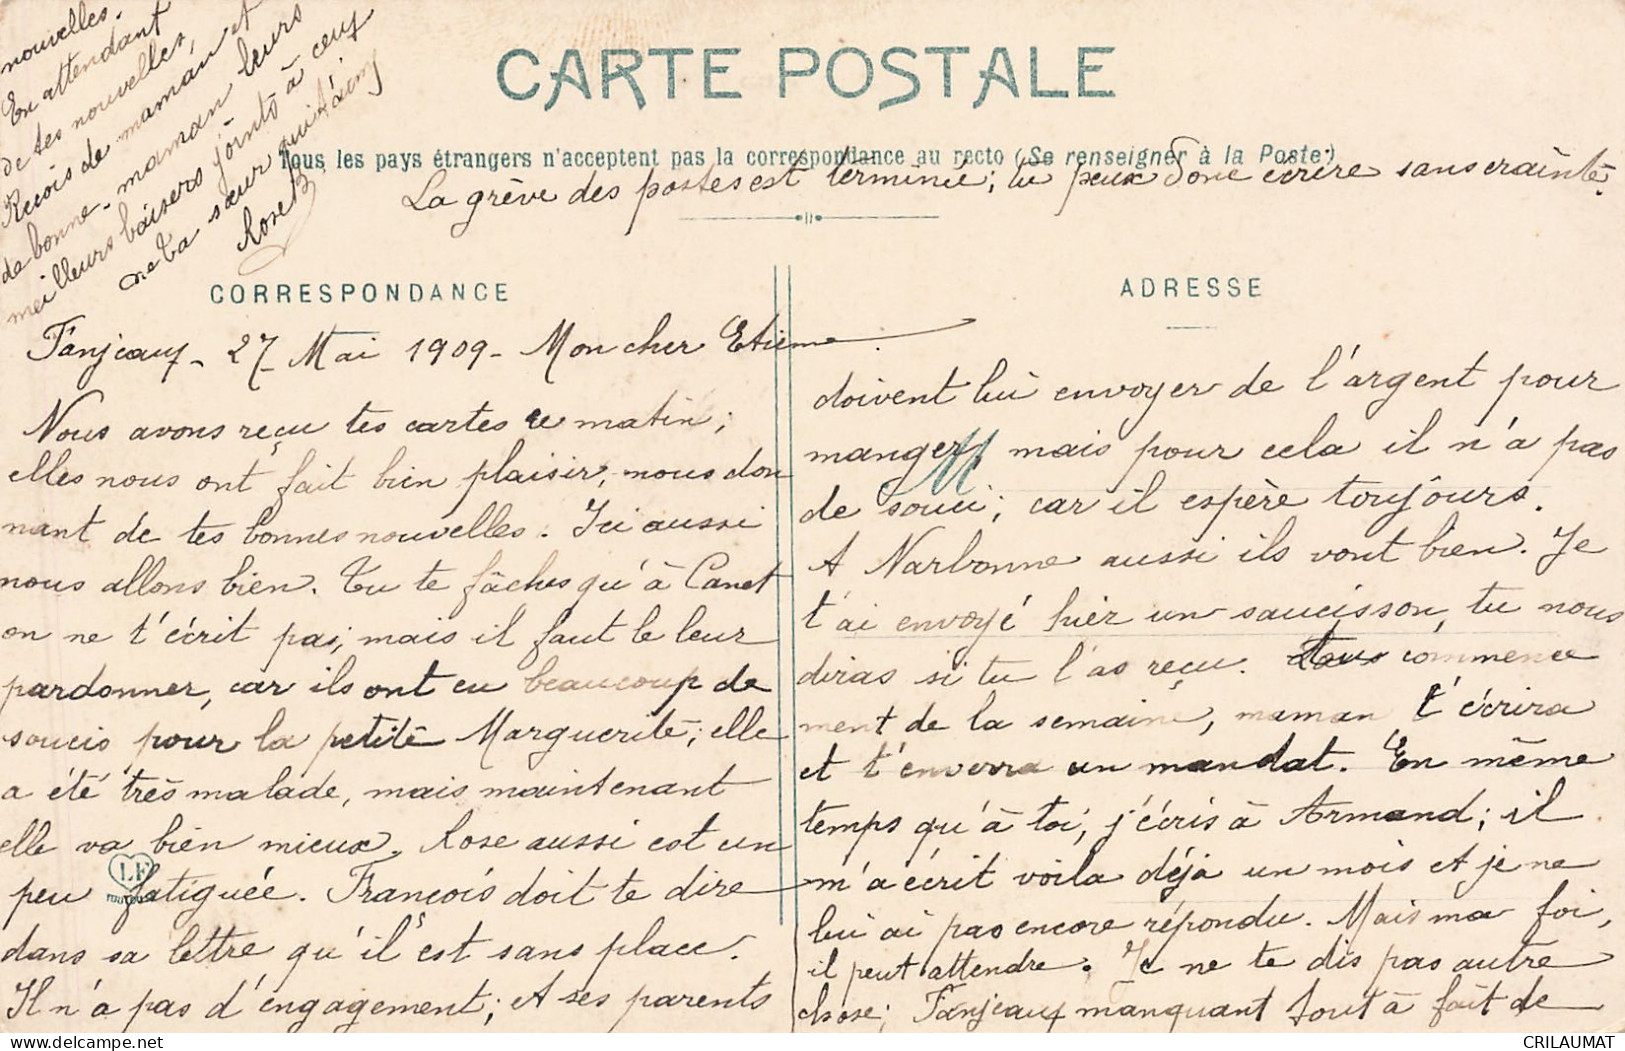 CARTE POSTALE
Tous les pays étrangers n'acceptent pas la correspondance au recto (Se renseigner à la Poste)
La grève des postes est terminée; tu peux donc écrire sans crainte.
CORRESPONDANCE
Fanjeaux - 27 Mai 1909 - Mon cher Etienne
Nous avons reçu tes cartes ce matin;
elles nous ont fait bien plaisir, nous don
nant de tes bonnes nouvelles. Ici aussi
nous allons bien. Tu te fâches qu'à Canet
on ne t'écrit pas; mais il faut le leur
pardonner, car ils ont eu beaucoup de
soucis pour la petite Marguerite; elle
a été très malade, mais maintenant
elle va bien mieux. Rose aussi est un
peu fatiguée. François doit te dire
dans sa lettre qu'il est sans place.
Il n'a pas d'engagement; et ses parents
LF
ADRESSE
doivent lui envoyer de l'argent pour
manger, mais pour cela il n'a pas
de souci; car il espère toujours.
A Narbonne aussi ils vont bien. Je
t'ai envoyé hier un saucisson, tu nous
diras si tu l'as reçu. commence
ment de la semaine, maman t'écrira
et t'enverra un mandat. En même
temps qu'à toi, j'écris à Armand; il
m'a écrit voila déjà un mois et je ne
lui ai pas encore répondu. Mais ma foi,
il peut attendre. Je ne te dis pas autre
chose; Fanjeaux manquant tout à fait de
nouvelles.
En attendant
de tes nouvelles,
Reçois de maman et
de bonne-maman leurs
meilleurs baisers joints à ceux
de ta sœur qui t'aime
Rose B
CRILAUMAT